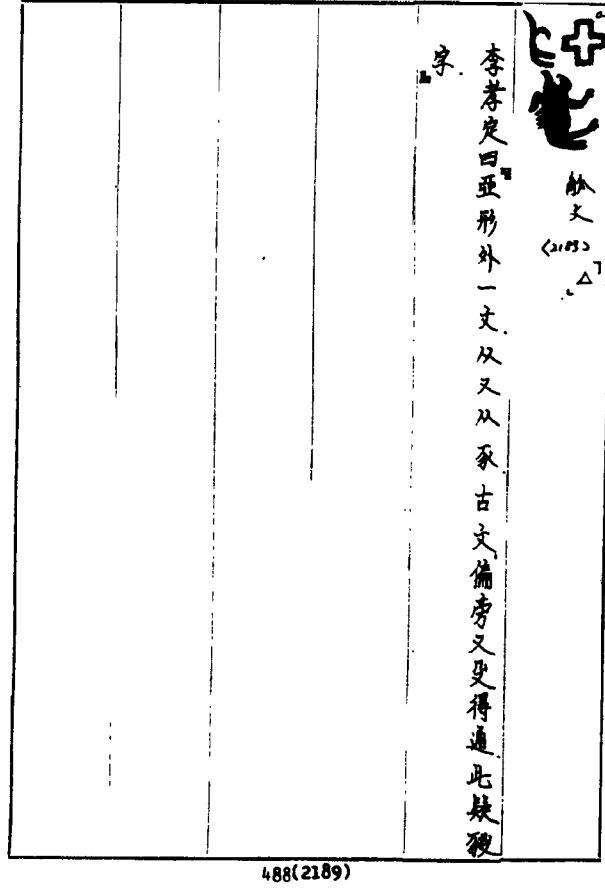 觚文 <2189> 「△」
李孝定曰「亞形外一文.从又从豕.古文偏旁又殳得通.此疑豛
字.」
488(2189)